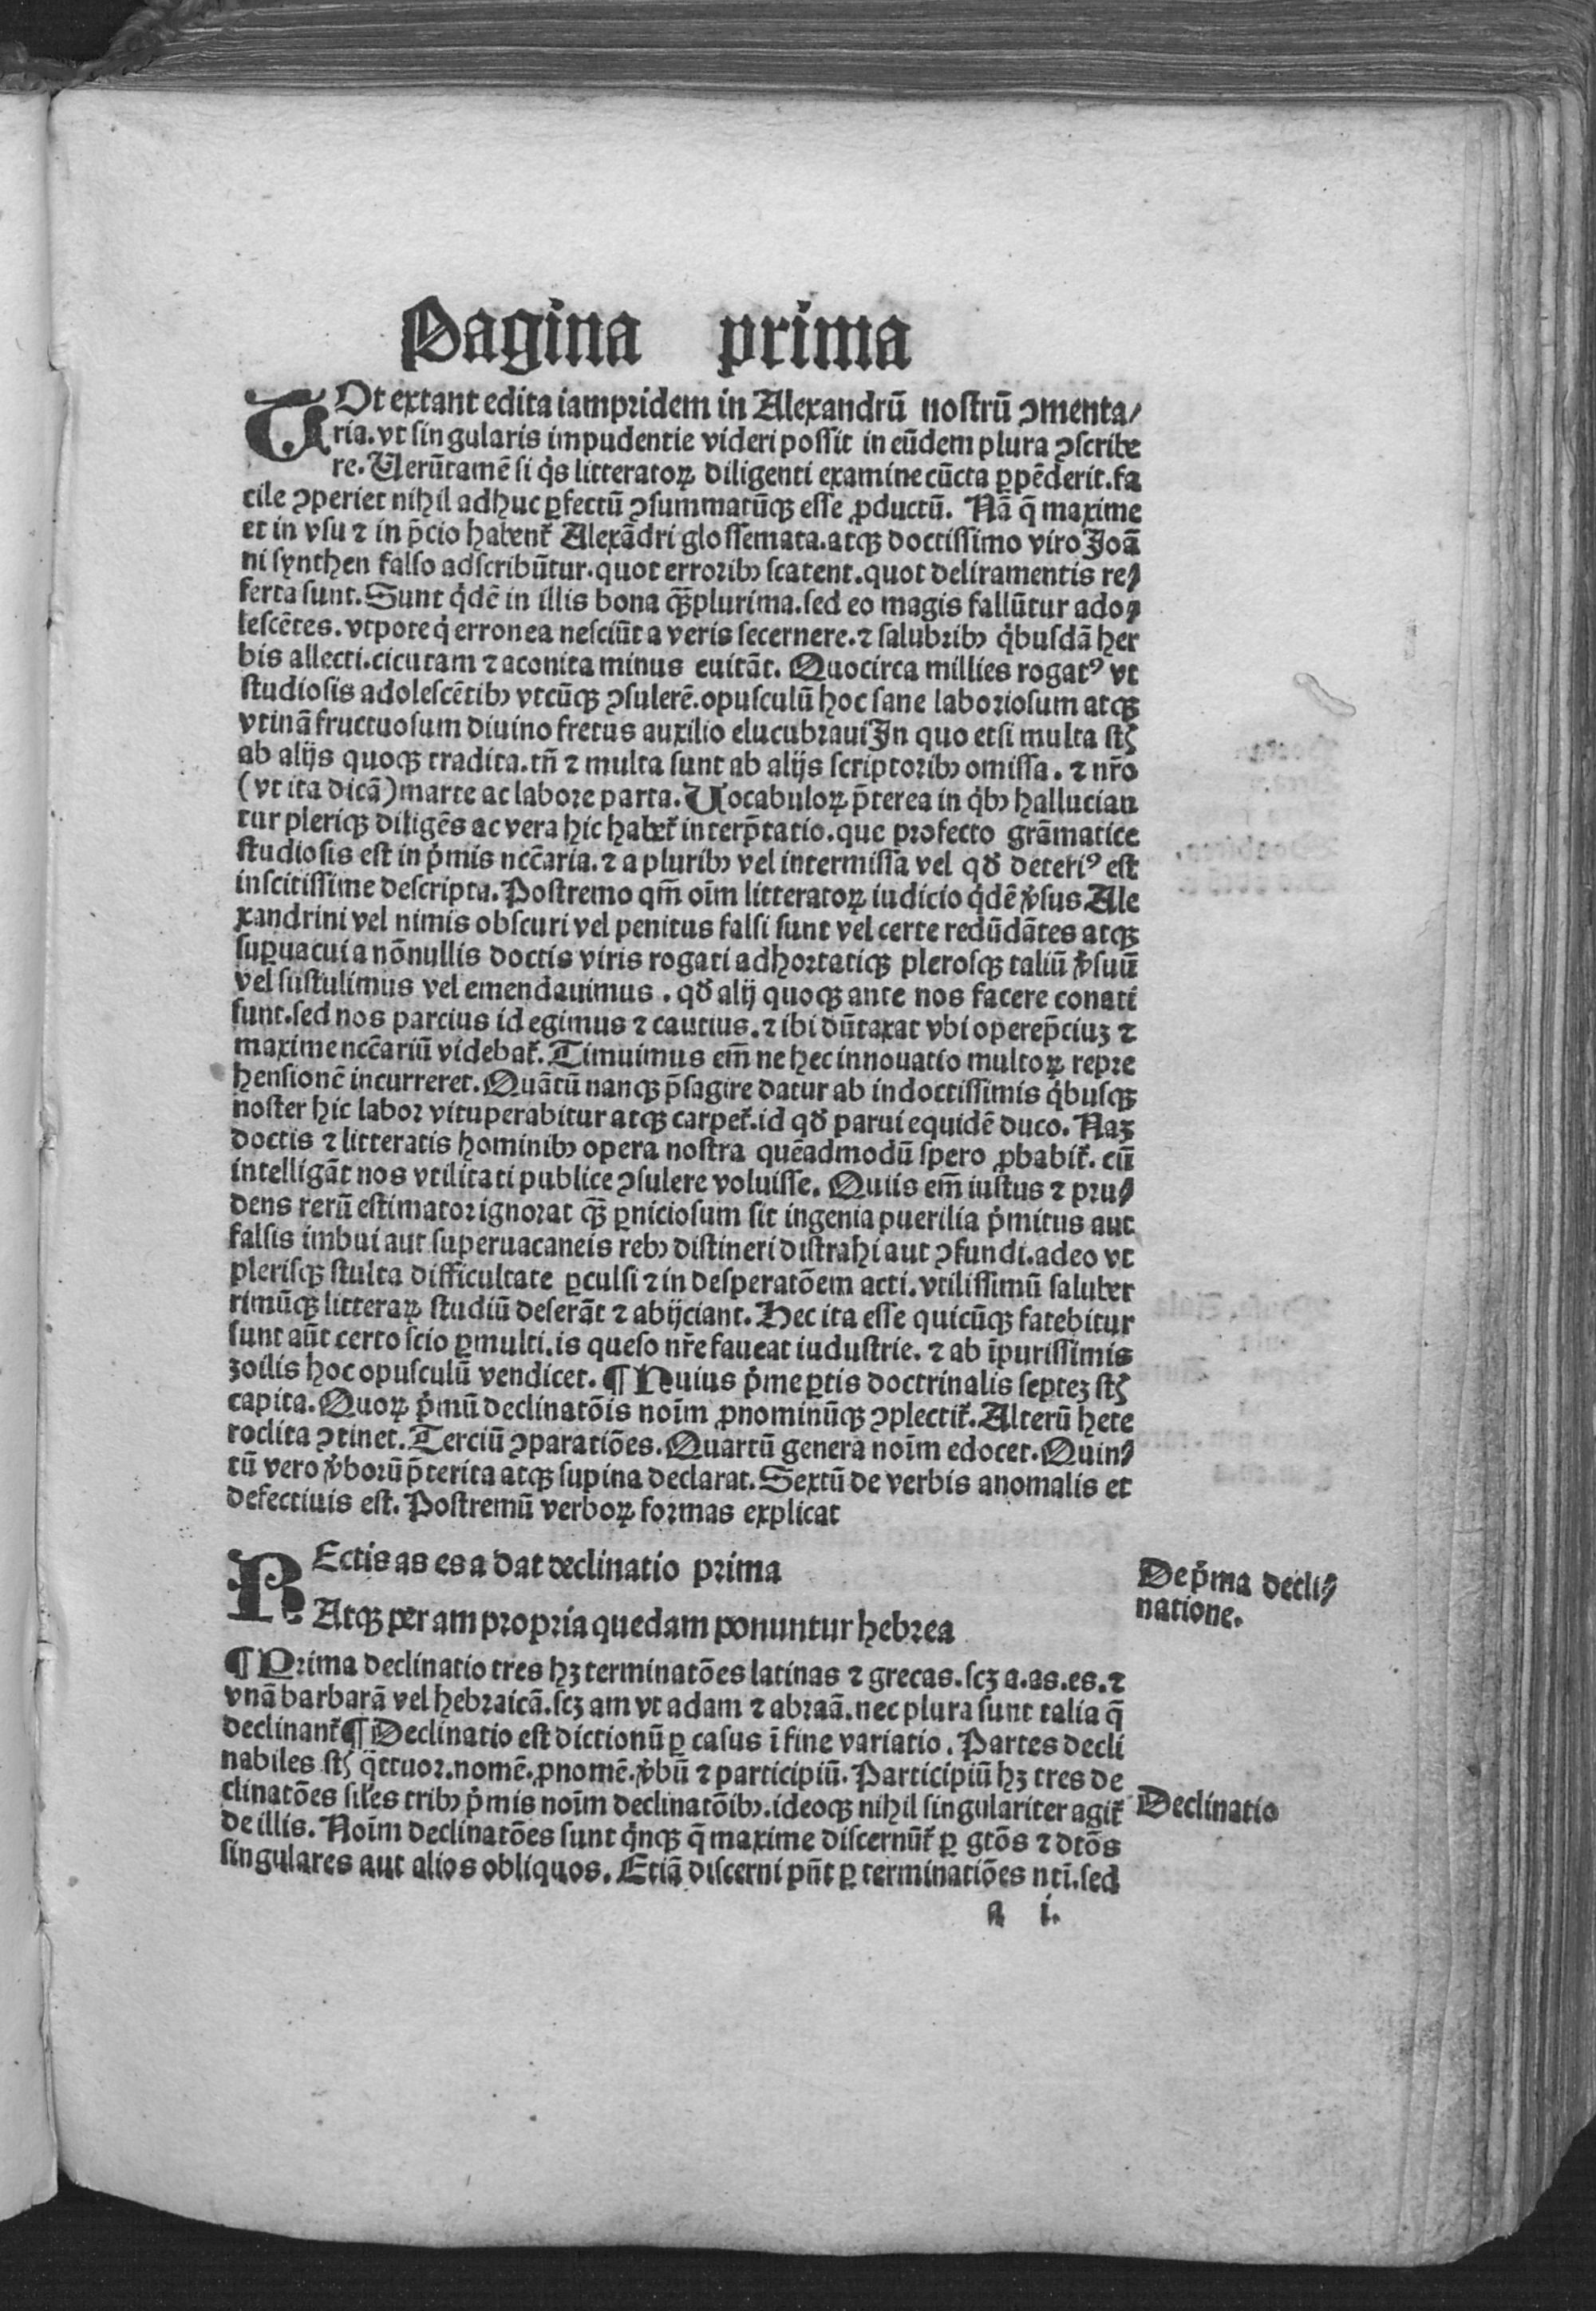 Pagina prima
TOt extant edita iampridem in Alexandrū nostrū ↄmenta/
ria. vt singularis impudentie videri possit in eūdem plura ↄscribe
re. Uerūtamē si q̇s litteratoꝝ diligenti examine cūcta ꝑpēderit. fa
cile ↄperiet nihil adhuc ꝑfectū ↄsummatūqꝫ esse ꝓductū. Nā q̄ maxime
et in vsu ⁊ in p̄cio habent᷑ Alexādri glossemata. atqꝫ doctissimo viro Joā
ni synthen falso adscribūtur. quot erroribꝰ scatent. quot deliramentis re/
ferta sunt. Sunt q̇dē in illis bona qꝫ̄plurima. sed eo magis fallūtur ado/
lescētes. vtpote q̇ erronea nesciūt a veris secernere. ⁊ salubribꝰ q̇busdā her
bis allecti. cicutam ⁊ aconita minus euitāt. Quocirca millies rogatꝰ vt
studiosis adolescētibꝰ vtcūqꝫ ↄsulerē. opusculū hoc sane laboriosum atqꝫ
vtinā fructuosum diuino fretus auxilio elucubraui In quo etsi multa st̄ʒ
ab alijs quoqꝫ tradita. tn̄ ⁊ multa sunt ab alijs scriptoribꝰ omissa. ⁊ nr̄o
(vt ita dicā) marte ac labore parta. Uocabuloꝝ p̄terea in q̇bꝰ hallucian
tur pleriqꝫ diligēs ac vera hic habet᷑ interp̄tatio. que profecto grāmatice
studiosis est in ṗmis ncc̄aria. ⁊ a pluribꝰ vel intermissa vel qd̓ deteriꝰ est
inscitissime descripta. Postremo qm̄ oīm litteratoꝝ iudicio q̇dē v̓sus Ale
xandrini vel nimis obscuri vel penitus falsi sunt vel certe redūdātes atqꝫ
suꝑuacui a nōnullis doctis viris rogati adhortatiqꝫ plerosqꝫ taliū v̓suū
vel sustulimus vel emendauimus. qd̓ alij quoqꝫ ante nos facere conati
sunt. sed nos parcius id egimus ⁊ cautius. ⁊ ibi dūtaxat vbi operep̄ciuꝫ ⁊
maxime ncc̄ariū videbat᷑. Timuimus em̄ ne hec innouatio multoꝝ repre
hensionē incurreret. Quātū nanqꝫ p̄sagire datur ab indoctissimis q̇busqꝫ
noster hic labor vituperabitur atqꝫ carpet᷑. id qd̓ parui equidē duco. Naꝫ
doctis ⁊ litteratis hominibꝰ opera nostra quēadmodū spero ꝓbabit᷑. cū
intelligāt nos vtilitati publice ↄsulere voluisse. Quiis em̄ iustus ⁊ pru/
dens rerū estimator ignorat qꝫ̄ ꝑniciosum sit ingenia puerilia ṗmitus aut
falsis imbui aut superuacaneis rebꝰ distineri distrahi aut ↄfundi. adeo vt
plerisqꝫ stulta difficultate ꝑculsi ⁊ in desperatōem acti. vtilissimū saluber
rimūqꝫ litteraꝝ studiū deserāt ⁊ abijciant. Hec ita esse quicūqꝫ fatebitur
sunt aūt certo scio ꝑmulti. is queso nr̄e faueat iudustrie. ⁊ ab īpurissimis
zoilis hoc opusculū vendicet. ¶ Huius ṗme ꝑtis doctrinalis septeꝫ st̄ʒ
capita. Quoꝝ ṗmū declinatōis noīm ꝓnominūqꝫ ↄplectit᷑. Alterū hete
roclita ↄtinet. Terciū ↄparatiōes. Quartū genera noīm edocet. Quin/
tū vero v̓borū p̄terita atqꝫ supina declarat. Sextū de verbis anomalis et
defectiuis est. Postremū verboꝝ formas explicat
REctis as es a dat declinatio prima
Atqꝫ per am propria quedam ponuntur hebrea
De ṗma decli/
natione.
¶ Prima declinatio tres hꝫ terminatōes latinas ⁊ grecas. scꝫ a. as. es. ⁊
vnā barbarā vel hebraicā. scꝫ am vt adam ⁊ abraā. nec plura sunt talia q̄
declinant᷑ ¶ Declinatio est dictionū ꝑ casus ī fine variatio. Partes decli
nabiles st̄ʒ q̄ttuor. nomē. ꝓnomē. v̓bū ⁊ participiū. Participiū hꝫ tres de
clinatōes sil̄es tribꝰ ṗmis noīm declinatōibꝰ. ideoqꝫ nihil singulariter agit᷑
de illis. Noīm declinatōes sunt q̇nqꝫ q̄ maxime discernūt᷑ ꝑ gtōs ⁊ dtōs
singulares aut alios obliquos. Etiā discerni pn̄t ꝑ terminatiōes ntī. sed
Declinatio
a i.